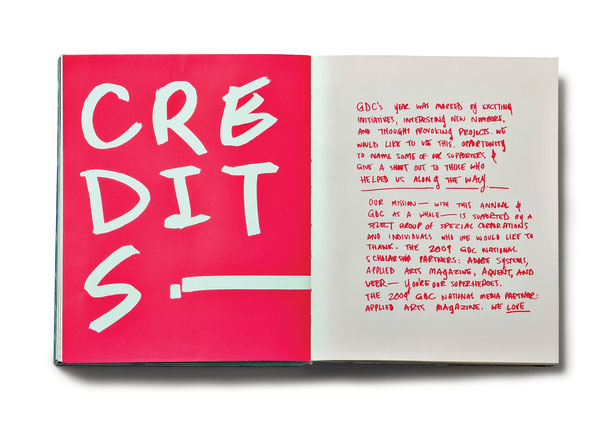 CRE
DIT
S.
GDC's YEAR WAS MARKED BY EXCITING
INITIATIVES, INTERESTING NEW NUMBERS,
AND THOUGHT PROVOKING PROJECTS. WE
WOULD LIKE TO USE THIS OPPORTUNITY
TO NAME SOME OF OUR SUPPORTERS &
GIVE A SHOUT OUT TO THOSE WHO
HELPED US ALONG THE WAY
OUR MISSION — WITH THIS ANNUAL &
GDC AS A WHOLE — IS SUPPORTED BY A
SELECT GROUP OF SPECIAL CORPORATIONS
AND INDIVIDUALS WHO WE WOULD LIKE TO
THANK. THE 2009 GDC NATIONAL
SCHOLARSHIP PARTNERS: ADOBE SYSTEMS,
APPLIED ARTS MAGAZINE, AQUENT, AND
VEER — YOU'RE OUR SUPERHEROES.
THE 2009 GDC NATIONAL MEDIA PARTNER:
APPLIED ARTS MAGAZINE. WE LOVE